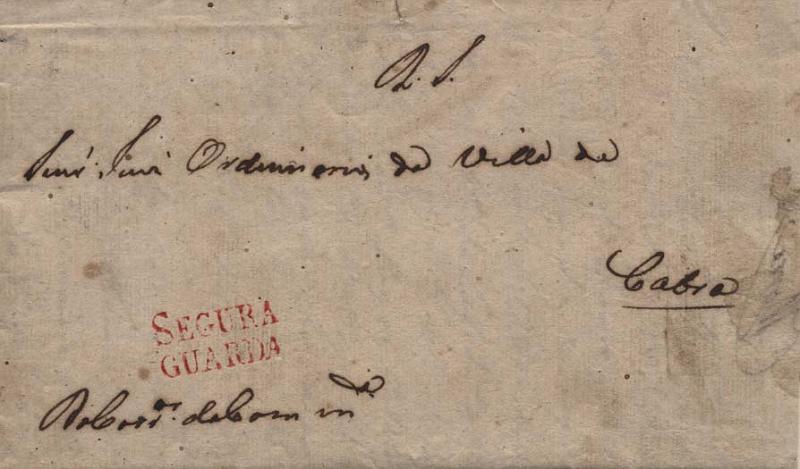 R. S.
Snr. Juiz Ordinario da Villa de
Cabra
SEGURA
GUARDA
Do Corr.or da Com